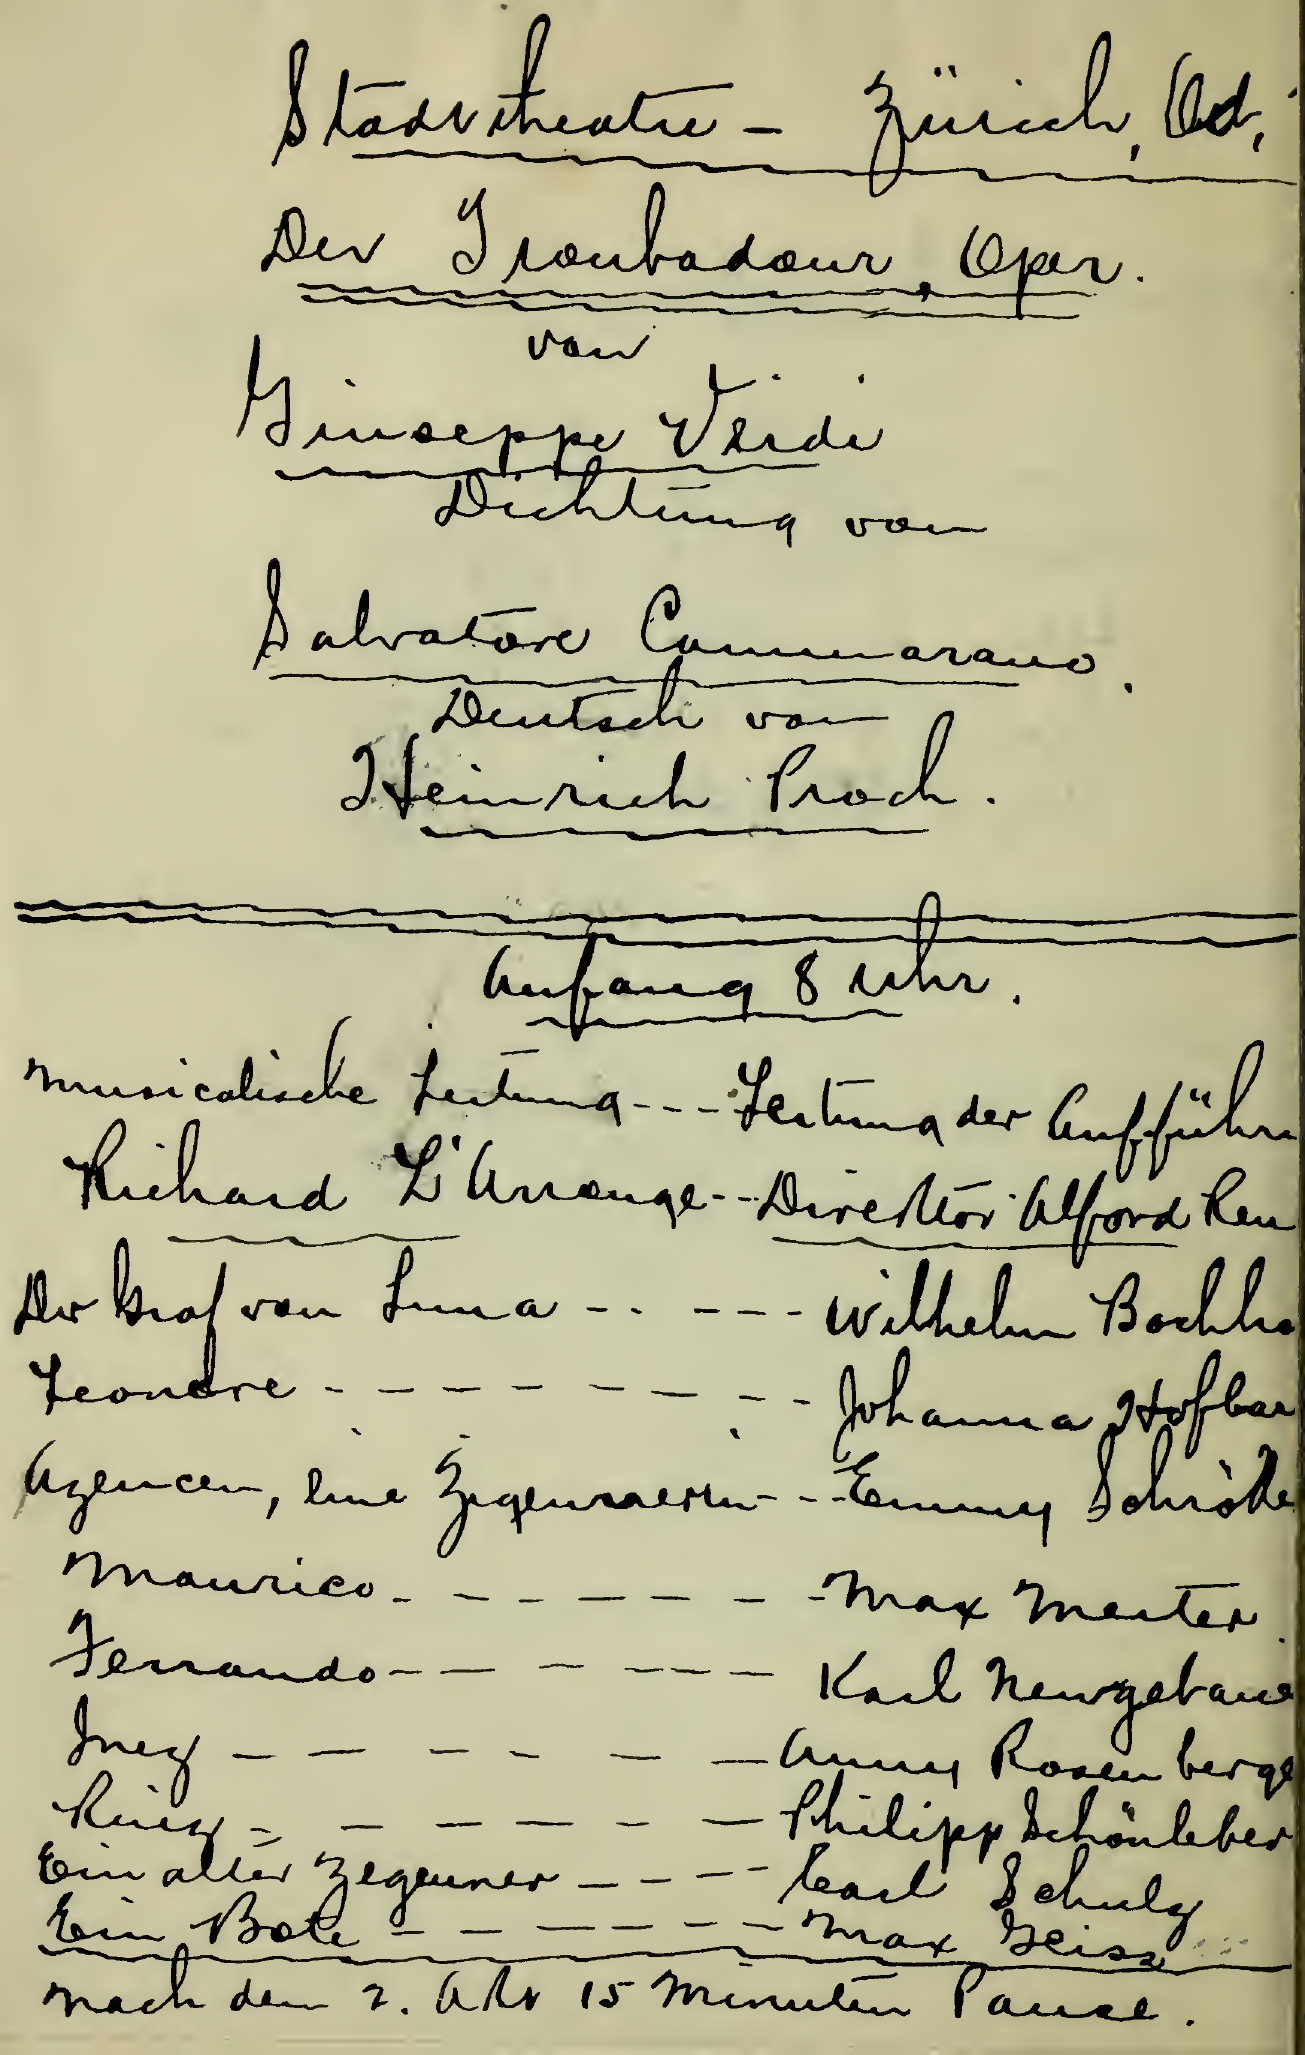 Stadttheatre - Zürich, Oct,
Der Troubadour, Oper.
von
Giuseppe Verdi
Dichtung von
Salvatore Cammarano.
Deutsch von
Heinrich Proch.
Anfang 8 Uhr.
Musicalische Leitung --- Leitung der Aufführu
Richard L'Arronge -- Direktor Alford Reu
Der Graf von Luna -- --- Wilhelm Bockho
Leonore - - - - - - - - Johanna Hofbau
Azencen, eine Zigeunerin - - - Emmy Schröte
Maurico - - - - - - - Max Merter.
Ferrando - - - - - - - Karl Neugebaue
Inez - - - - - - - Anny Rosenberge
Ruiz - - - - - - - Philipp Schönleber
Ein alter Zegeuner - - - - Carl Schulz
Ein Bote - - - - - - - Max Geisz
nach dem 2. Akt 15 Minuten Pause.